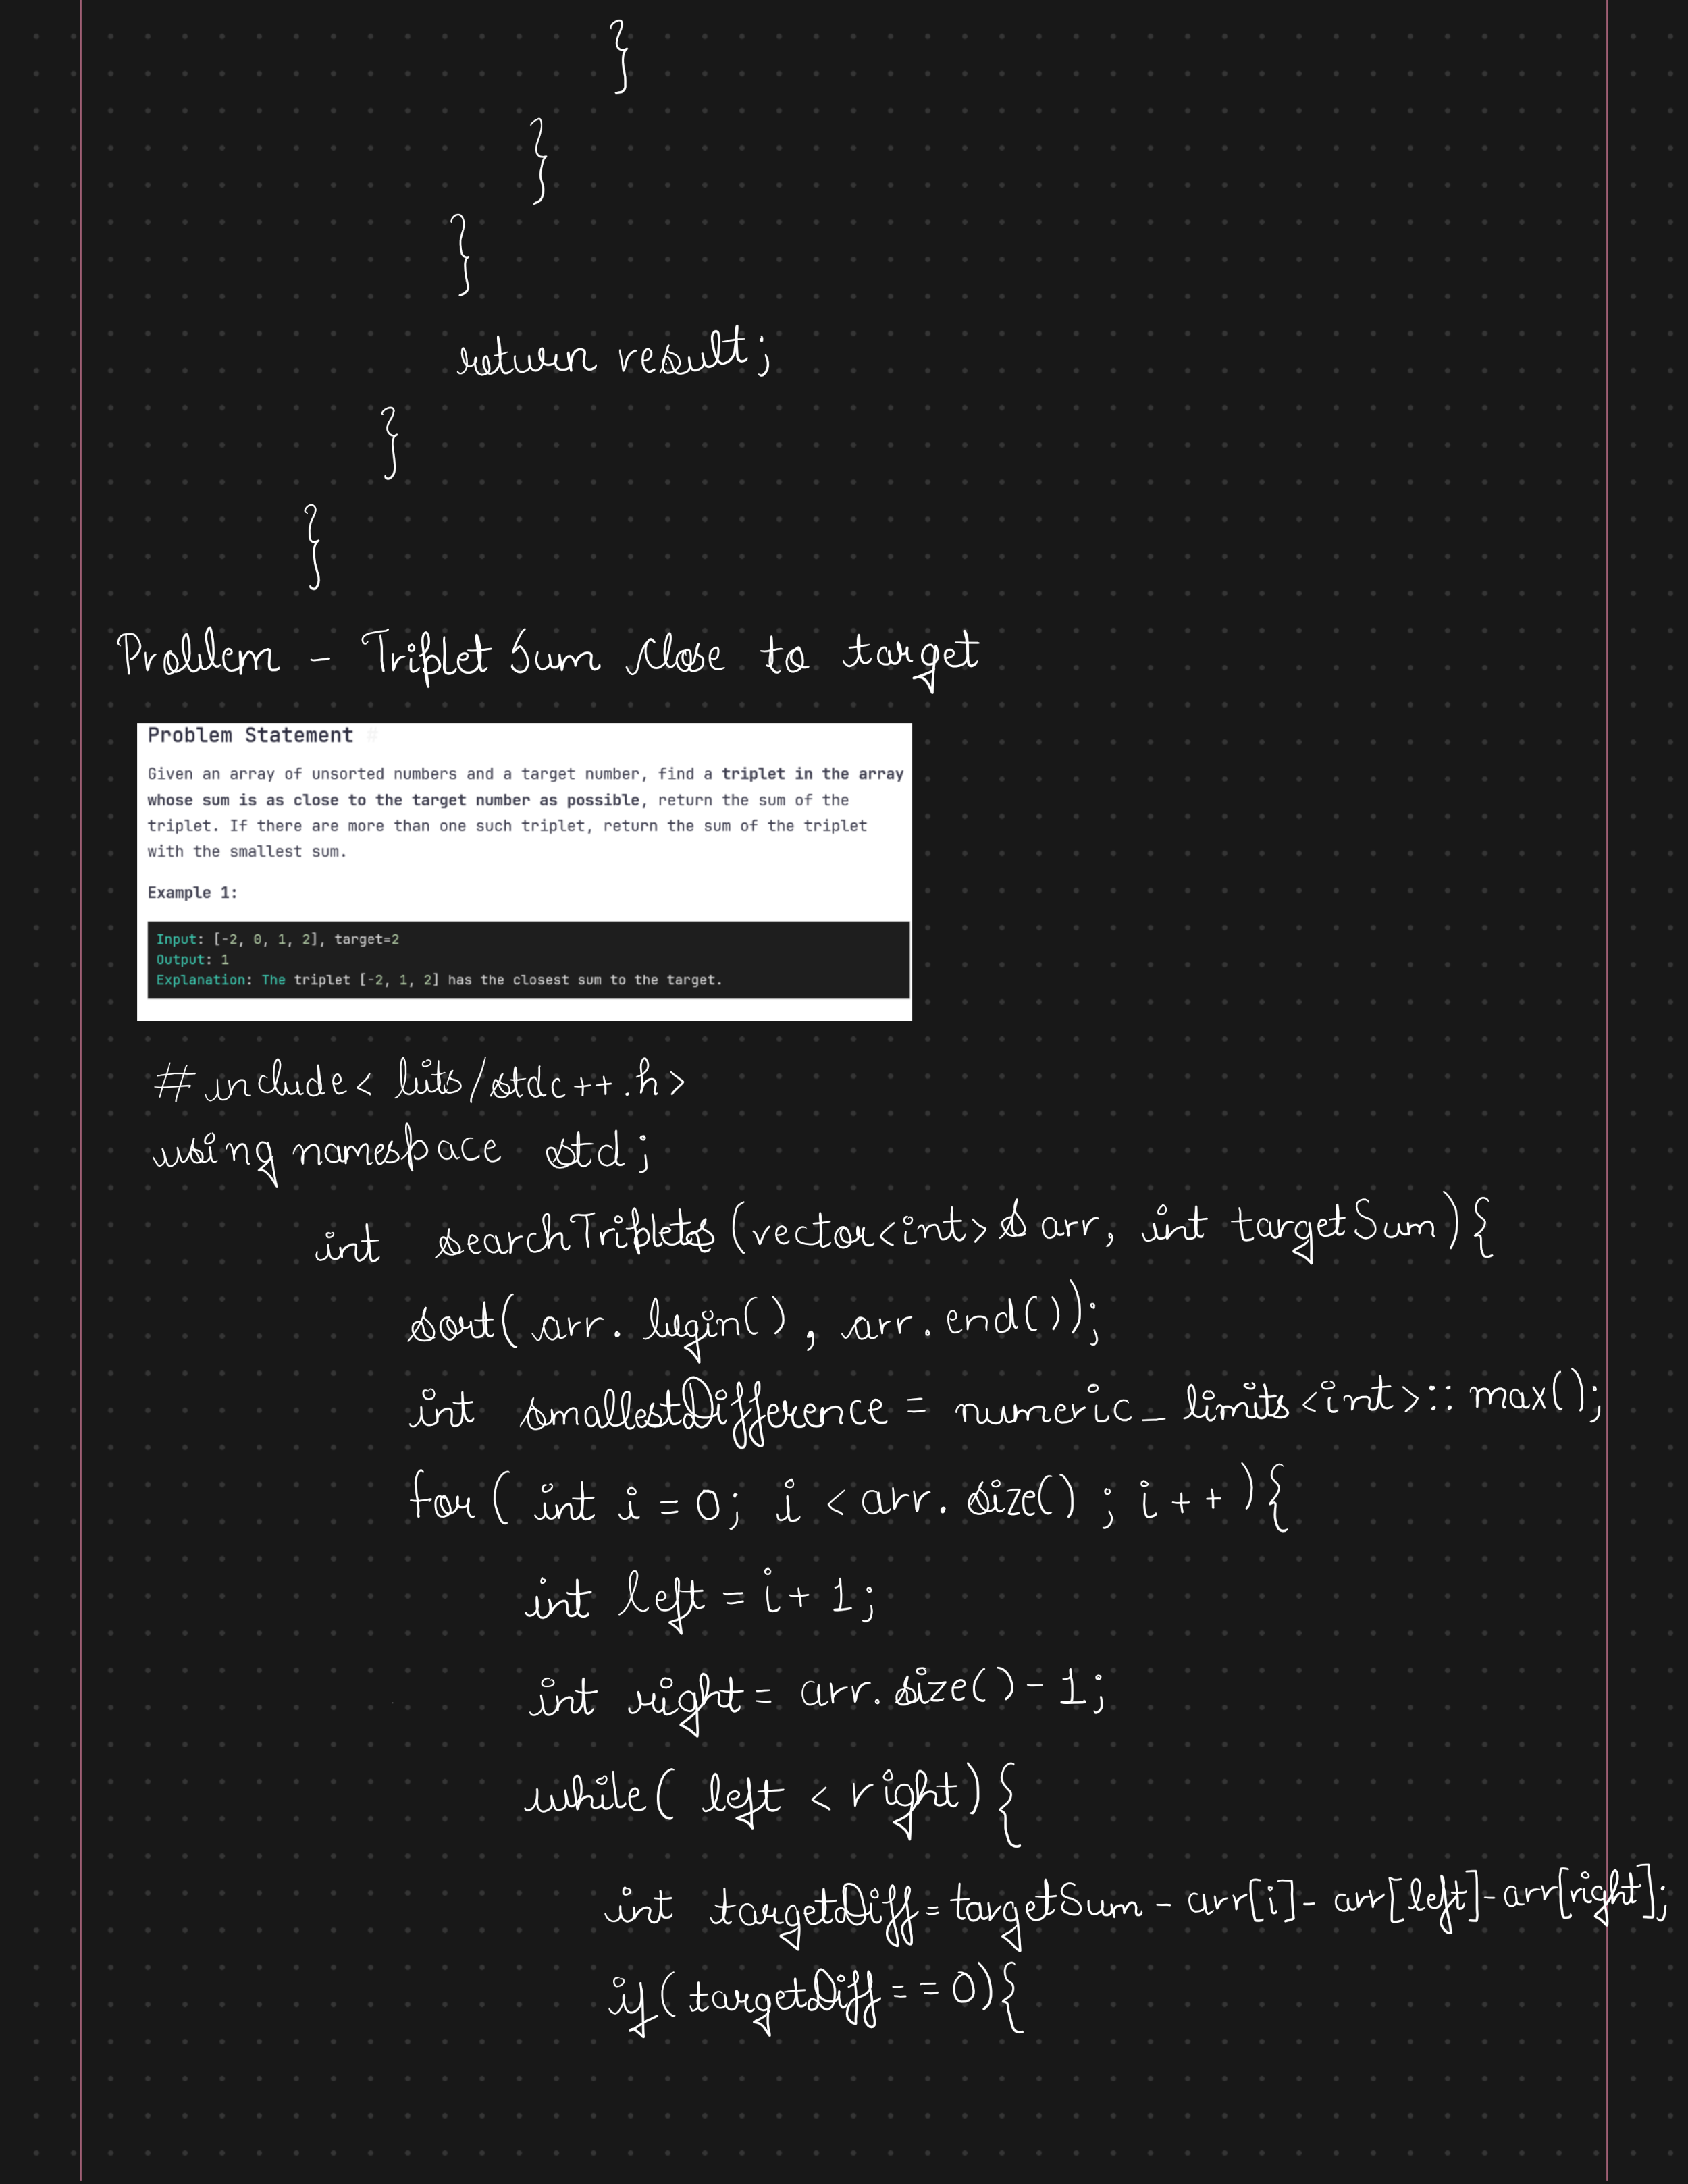 }
}
}
return result;
}
}
Problem - Triplet Sum Close to target
Problem Statement #
Given an array of unsorted numbers and a target number, find a triplet in the array
whose sum is as close to the target number as possible, return the sum of the
triplet. If there are more than one such triplet, return the sum of the triplet
with the smallest sum.
Example 1:
Input: [-2, 0, 1, 2], target=2
Output: 1
Explanation: The triplet [-2, 1, 2] has the closest sum to the target.
# include < bits/stdc++.h>
using namespace std;
int searchTriplets (vector<int>& arr, int targetSum){
sort( arr. begin() , arr. end());
int smallestDifference = numeric_limits<int>:: max();
for( int i = 0; i < arr. size() ; i++ ){
int left = i + 1;
int right = arr. size() - 1;
while( left < right) {
int targetDiff = targetSum - arr[i] - arr[left] - arr[right];
if( targetDiff == 0){